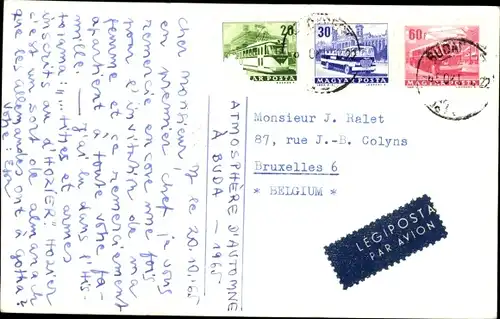 M le 20.10.65
Cher monsieur,
en premier chef je vous
remercie encore une fois
pour l'invitation de ma
femme et ce remerciement
apartient à toute votre fa-
mille. — J'ai lu dans l'His-
toiama: "Titres et armes
inscrits au d'HOZIER." Hozier
c'est un sort de almanach
que les allemandes ont à gotha?
Votre:
ATMOSPHÈRE D'AUTOMNE
À BUDA — 1965
20
MAGYAR POSTA
30
MAGYAR POSTA
60
MAGYAR POSTA
BUDAPEST
Monsieur J. Ralet
87, rue J.-B. Colyns
Bruxelles 6
* BELGIUM *
LÉGIPOSTA
PAR AVION